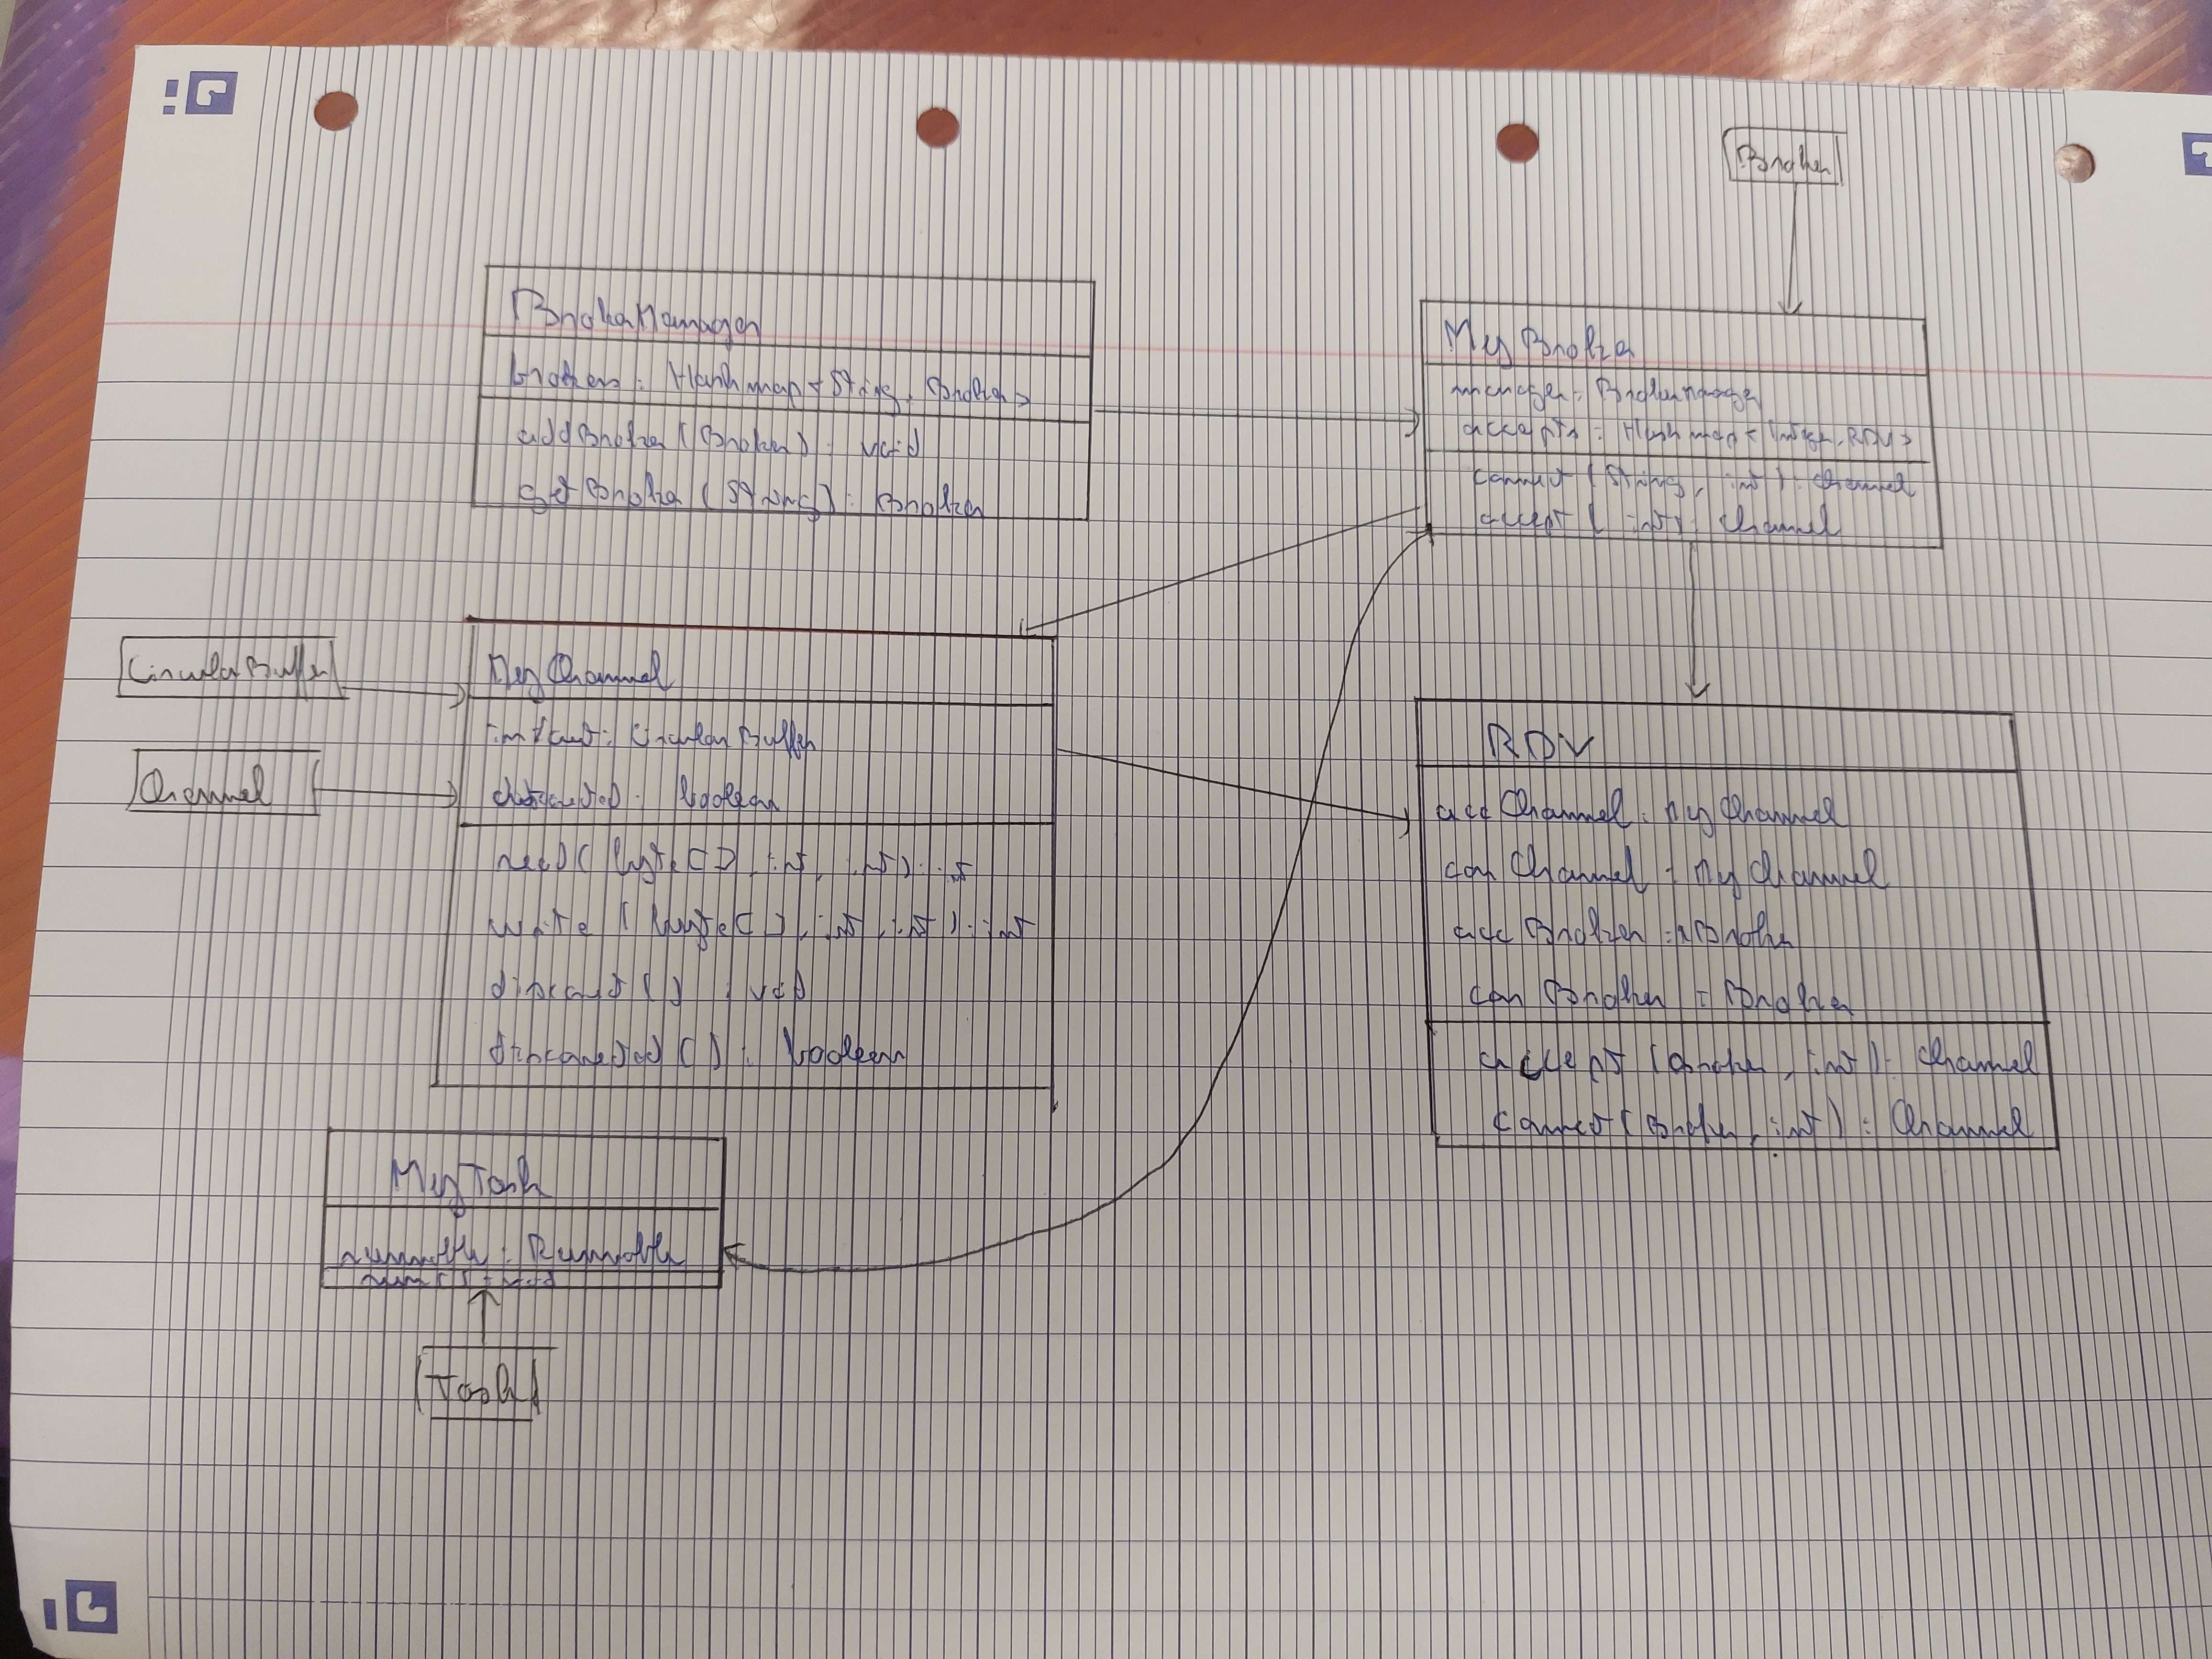 Broker
BrokerManager
brokers : Hashmap < String, Broker >
addBroker (Broker) : void
getBroker (String) : Broker
MyBroker
manager : BrokerManager
accepts : Hashmap < Integer, RDV >
connect (String, int) : Channel
accept (int) : Channel
CircularBuffer
Channel
MyChannel
in/out : CircularBuffer
disconnected : boolean
read (byte[], int, int) : int
write (byte[], int, int) : int
disconnect () : void
disconnected () : boolean
RDV
accChannel : MyChannel
conChannel : MyChannel
accBroker : Broker
conBroker : Broker
accept (Broker, int) : Channel
connect (Broker, int) : Channel
MyTask
runnable : Runnable
run () : void
Task